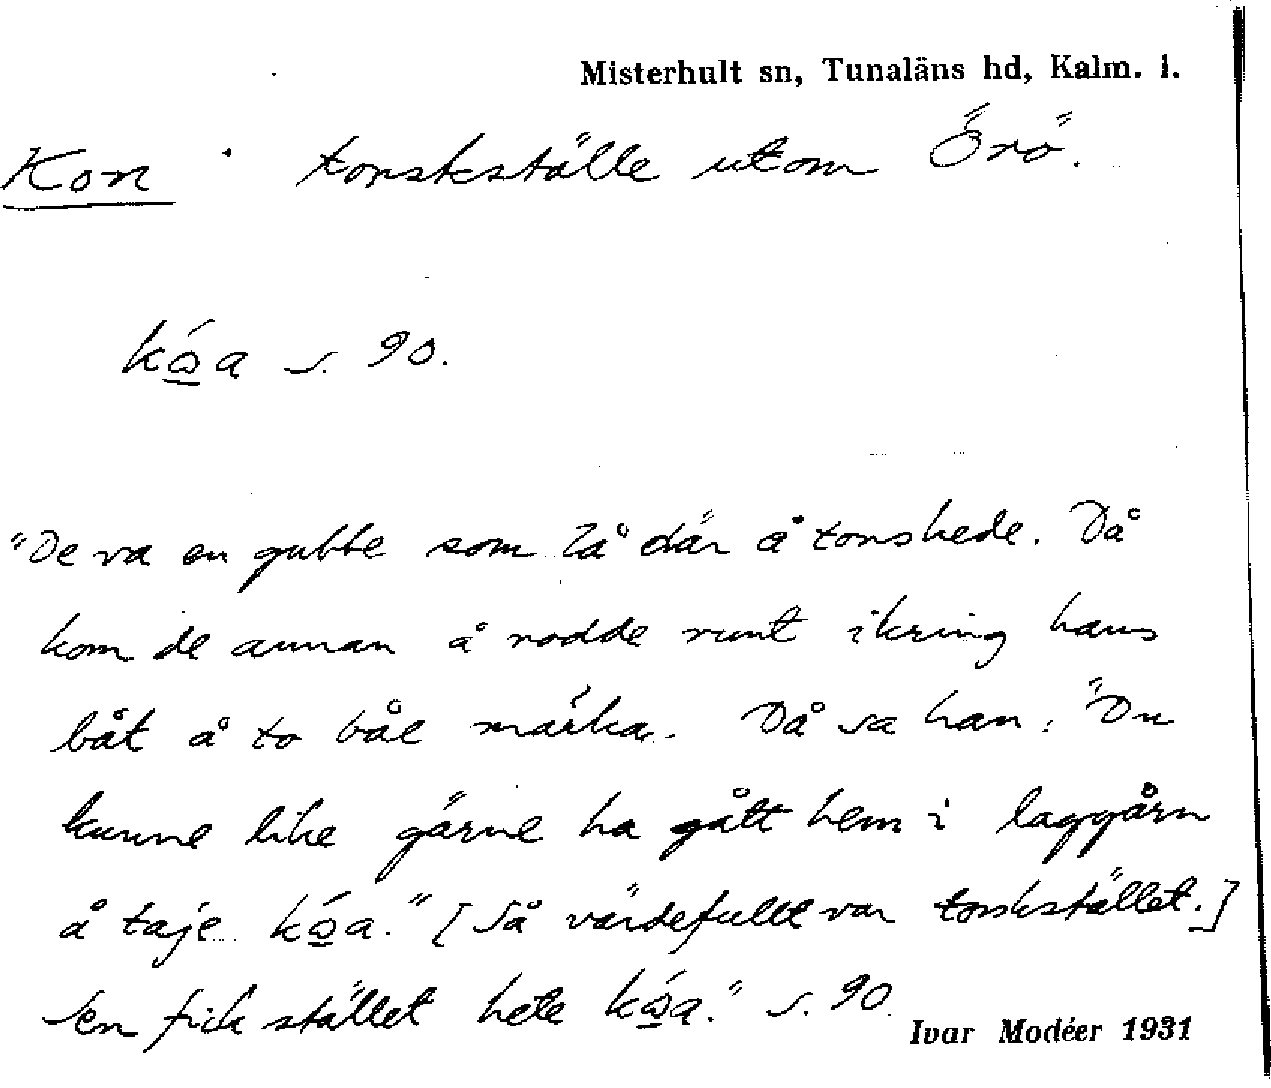 Misterhult sn, Tunaläns hd, Kalm. l.
Kon torskställe utom Örö.
kó̲a s. 90.
"De va en gubbe som lå där å torskede. Då
kom de annan å rodde runt ikring hans
båt å to båe märka. Då sa han: "Du
kunne like gärne ha gått hem i laggårn
å taje kó̲a." [Så värdefullt var torskstället.]
Sen fick stället hete kó̲a." s. 90.
Ivar Modéer 1931